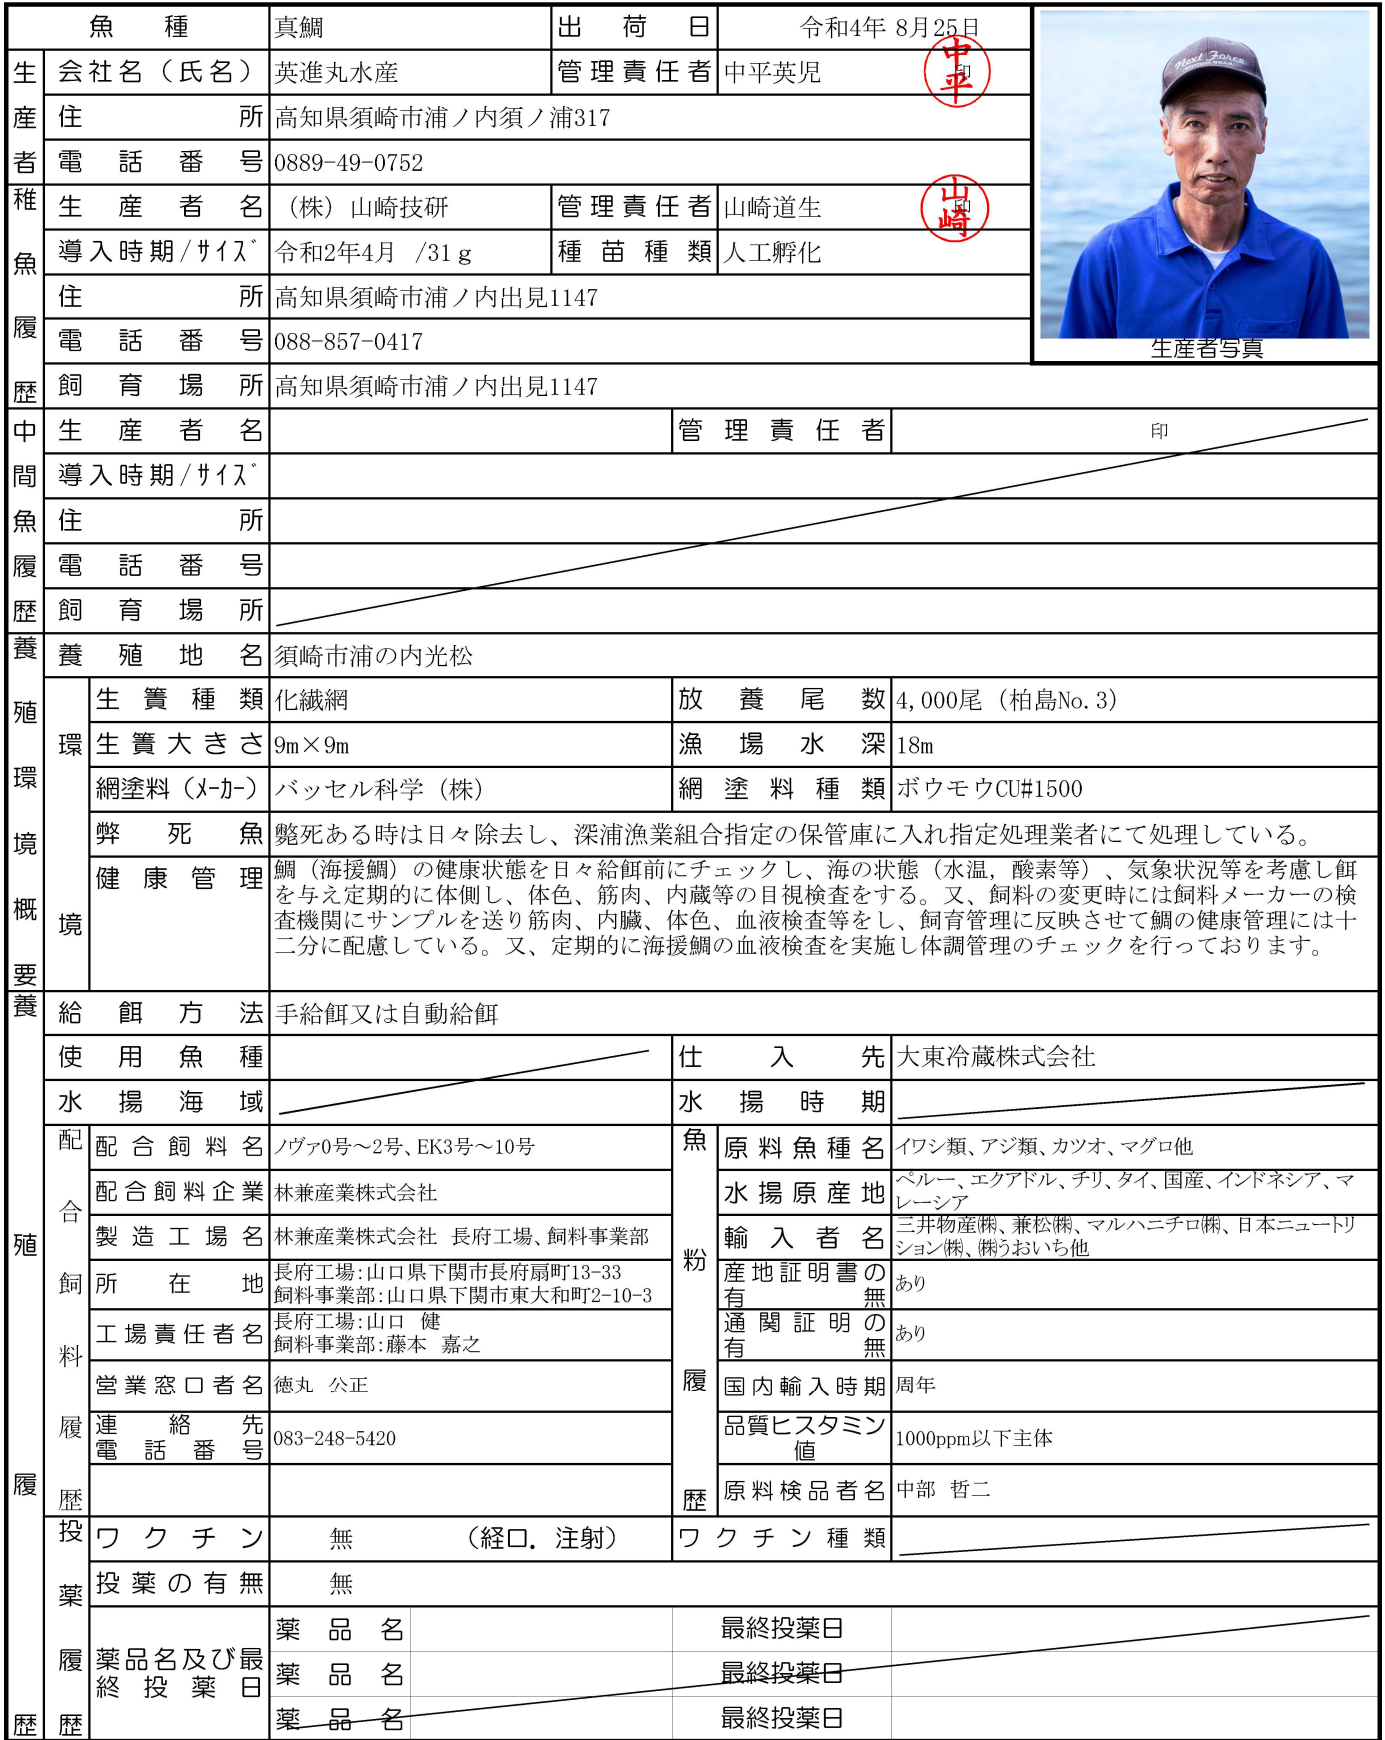 魚種 真鯛 出荷日 令和4年 8月25日
生産者
会社名（氏名） 英進丸水産 管理責任者 中平英児 印 中平
住所 高知県須崎市浦ノ内須ノ浦317
電話番号 0889-49-0752
Next Force
生産者写真
稚魚履歴
生産者名 （株）山崎技研 管理責任者 山崎道生 印 山崎
導入時期/ｻｲｽﾞ 令和2年4月 /31ｇ 種苗種類 人工孵化
住所 高知県須崎市浦ノ内出見1147
電話番号 088-857-0417
飼育場所 高知県須崎市浦ノ内出見1147
中間魚履歴
生産者名 管理責任者 印
導入時期/ｻｲｽﾞ
住所
電話番号
飼育場所
養殖環境概要
養殖地名 須崎市浦の内光松
環境
生簀種類 化繊網 放養尾数 4,000尾（柏島No.3）
生簀大きさ 9m×9m 漁場水深 18m
網塗料（ﾒｰｶｰ） バッセル科学（株） 網塗料種類 ボウモウCU#1500
弊死魚 斃死ある時は日々除去し、深浦漁業組合指定の保管庫に入れ指定処理業者にて処理している。
健康管理 鯛（海援鯛）の健康状態を日々給餌前にチェックし、海の状態（水温，酸素等）、気象状況等を考慮し餌
を与え定期的に体側し、体色、筋肉、内蔵等の目視検査をする。又、飼料の変更時には飼料メーカーの検
査機関にサンプルを送り筋肉、内臓、体色、血液検査等をし、飼育管理に反映させて鯛の健康管理には十
二分に配慮している。又、定期的に海援鯛の血液検査を実施し体調管理のチェックを行っております。
養殖履歴
給餌方法 手給餌又は自動給餌
使用魚種 仕入先 大東冷蔵株式会社
水揚海域 水揚時期
配合飼料履歴
配合飼料名 ノヴァ0号～2号、EK3号～10号
配合飼料企業 林兼産業株式会社
製造工場名 林兼産業株式会社 長府工場、飼料事業部
所在地 長府工場：山口県下関市長府扇町13-33
飼料事業部：山口県下関市東大和町2-10-3
工場責任者名 長府工場：山口 健
飼料事業部：藤本 嘉之
営業窓口者名 徳丸 公正
連絡先
電話番号 083-248-5420
魚粉履歴
原料魚種名 イワシ類、アジ類、カツオ、マグロ他
水揚原産地 ペルー、エクアドル、チリ、タイ、国産、インドネシア、マ
レーシア
輸入者名 三井物産㈱、兼松㈱、マルハニチロ㈱、日本ニュートリ
ション㈱、㈱うおいち他
産地証明書の
有無 あり
通関証明の
有無 あり
国内輸入時期 周年
品質ヒスタミン
値 1000ppm以下主体
原料検品者名 中部 哲二
投薬履歴
ワクチン 無 （経口．注射） ワクチン種類
投薬の有無 無
薬品名及び最
終投薬日
薬品名 最終投薬日
薬品名 最終投薬日
薬品名 最終投薬日